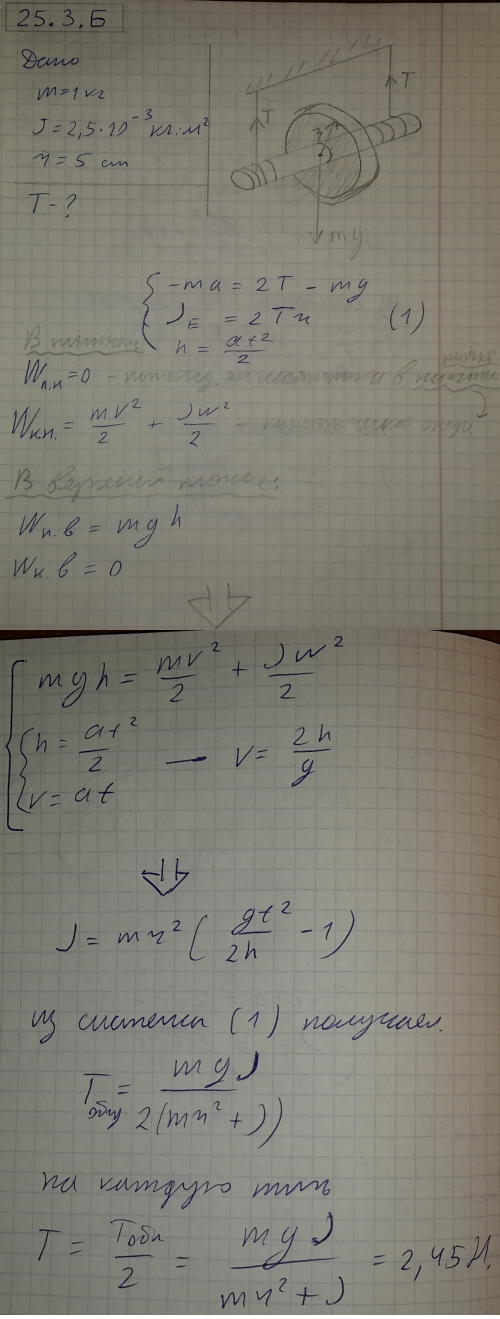 25.3.Б
Дано
m=1 кг
J=2,5·10⁻³ кг·м²
r=5 cm
T-?
T
T
r
mg
-ma = 2T - mg
Jε = 2Tr (1)
h = at²/2
Wп.н=0 - потенц.
точке
Wк.н. = mv²/2 + Jw²/2 -
В верхней точке:
Wп.в = mgh
Wк.в = 0
mgh = mv²/2 + Jw²/2
h = at²/2 — v = 2h/g
v = at
J = mr² (gt²/2h - 1)
из системы (1) получаем.
Tобщ = mgJ/2(mr²+J)
на каждую нить
T = Tобщ/2 = mgJ/mr²+J = 2,45 Н.